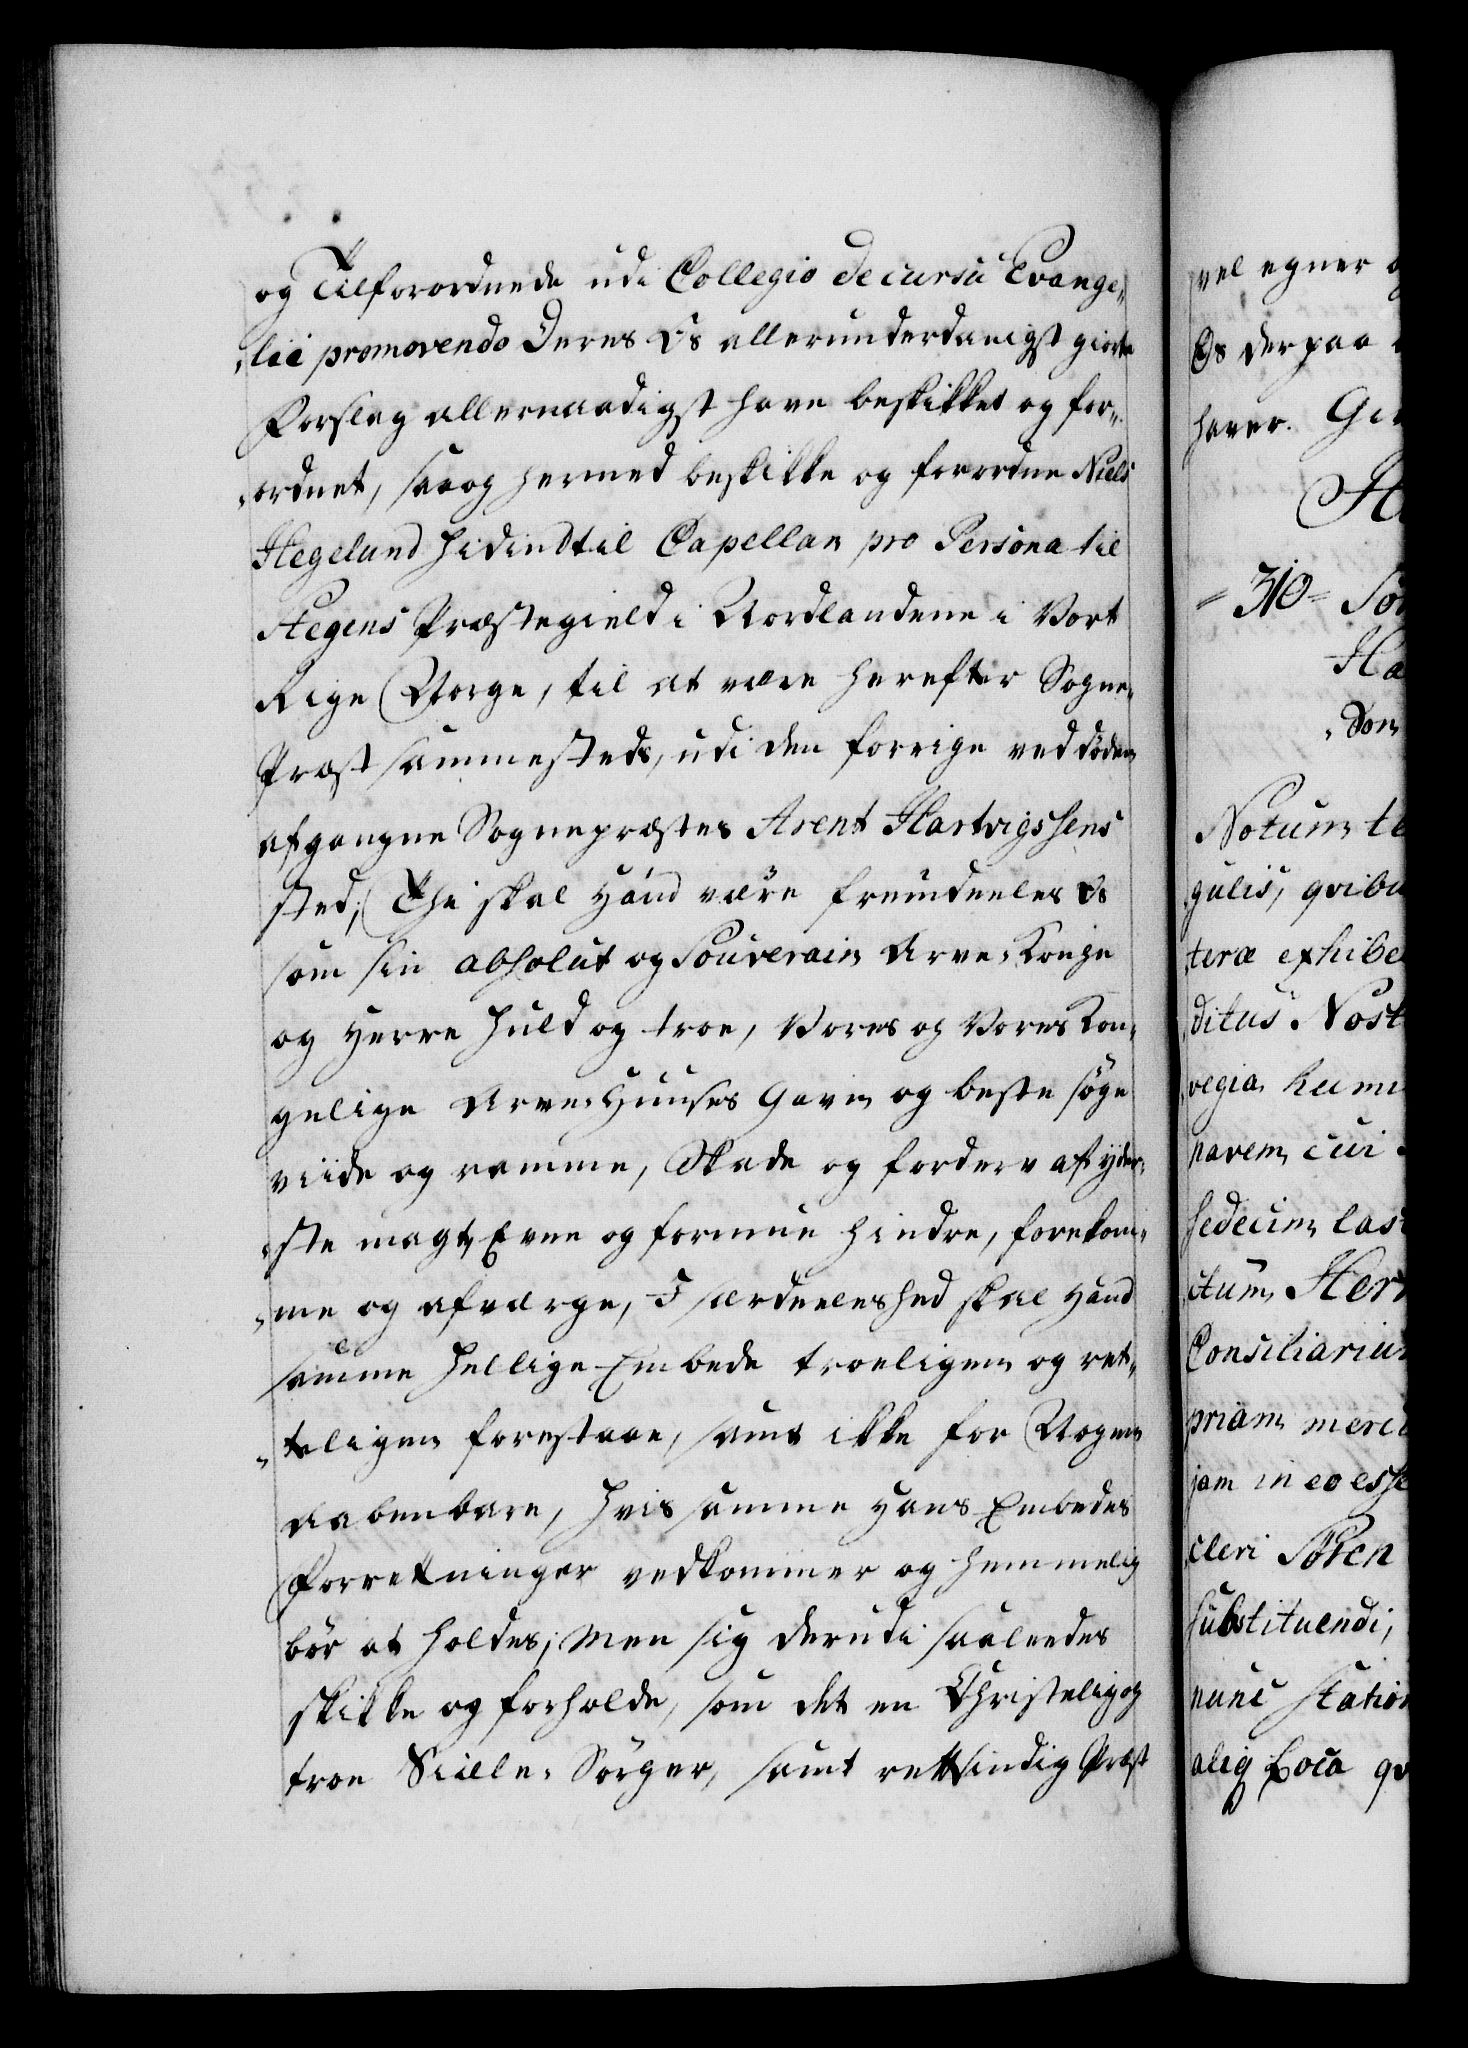 og Tilforordnede udi Collegio de cursu Evange„
„lii promovendo Deres Os allerunderdanigst giorte
Forslag allernaadigst have beskikket og for„
„ordnet, saa og hermed beskikke og forordne Niels
Hegelund hidindtil Capellan pro Persona til
Stegens Præstegield i Nordlandene i Vort
Rige Norge, til at være herefter Sogne„
Præst sammesteds, udi den forrige ved døden
afgangne Sognepræstes Arent Hartvigssens
sted; Thi skal Hand være fremdeeles Os
som sin absolut og Souverain Arve-Konge
og Herre huld og troe, Vores og Vores Kon„
gelige Arve-Huuses Gavn og beste søge
viide og ramme, Skade og forderv af yder„
„ste magt, Evne og formue hindre, forekom„
„me og afværge, I særdeeleshed skal Hand
samme hellige Embede troeligen og ret„
„teligen forestaae, samt ikke for Nogen
aabenbare, hvis samme Hans Embedes
Forretninger vedkommer og hemmelig
bør at holdes; Men sig derudi saaleedes
skikke og forholde, som det en Christelig og
troe Siæle-Sørger, samt rettsindig Præst
vel egner
Os derpaa
haver.
= 310 =
Notum
gulis, qvibu
teræ exhibe
ditus Nost
vegia humi
navem, cui
sedecim las
ctum, Her
Consiliariu
priam merc
jam in eo esse
cleri Sören
substituendi,
nunc Station
aliq Loca qv